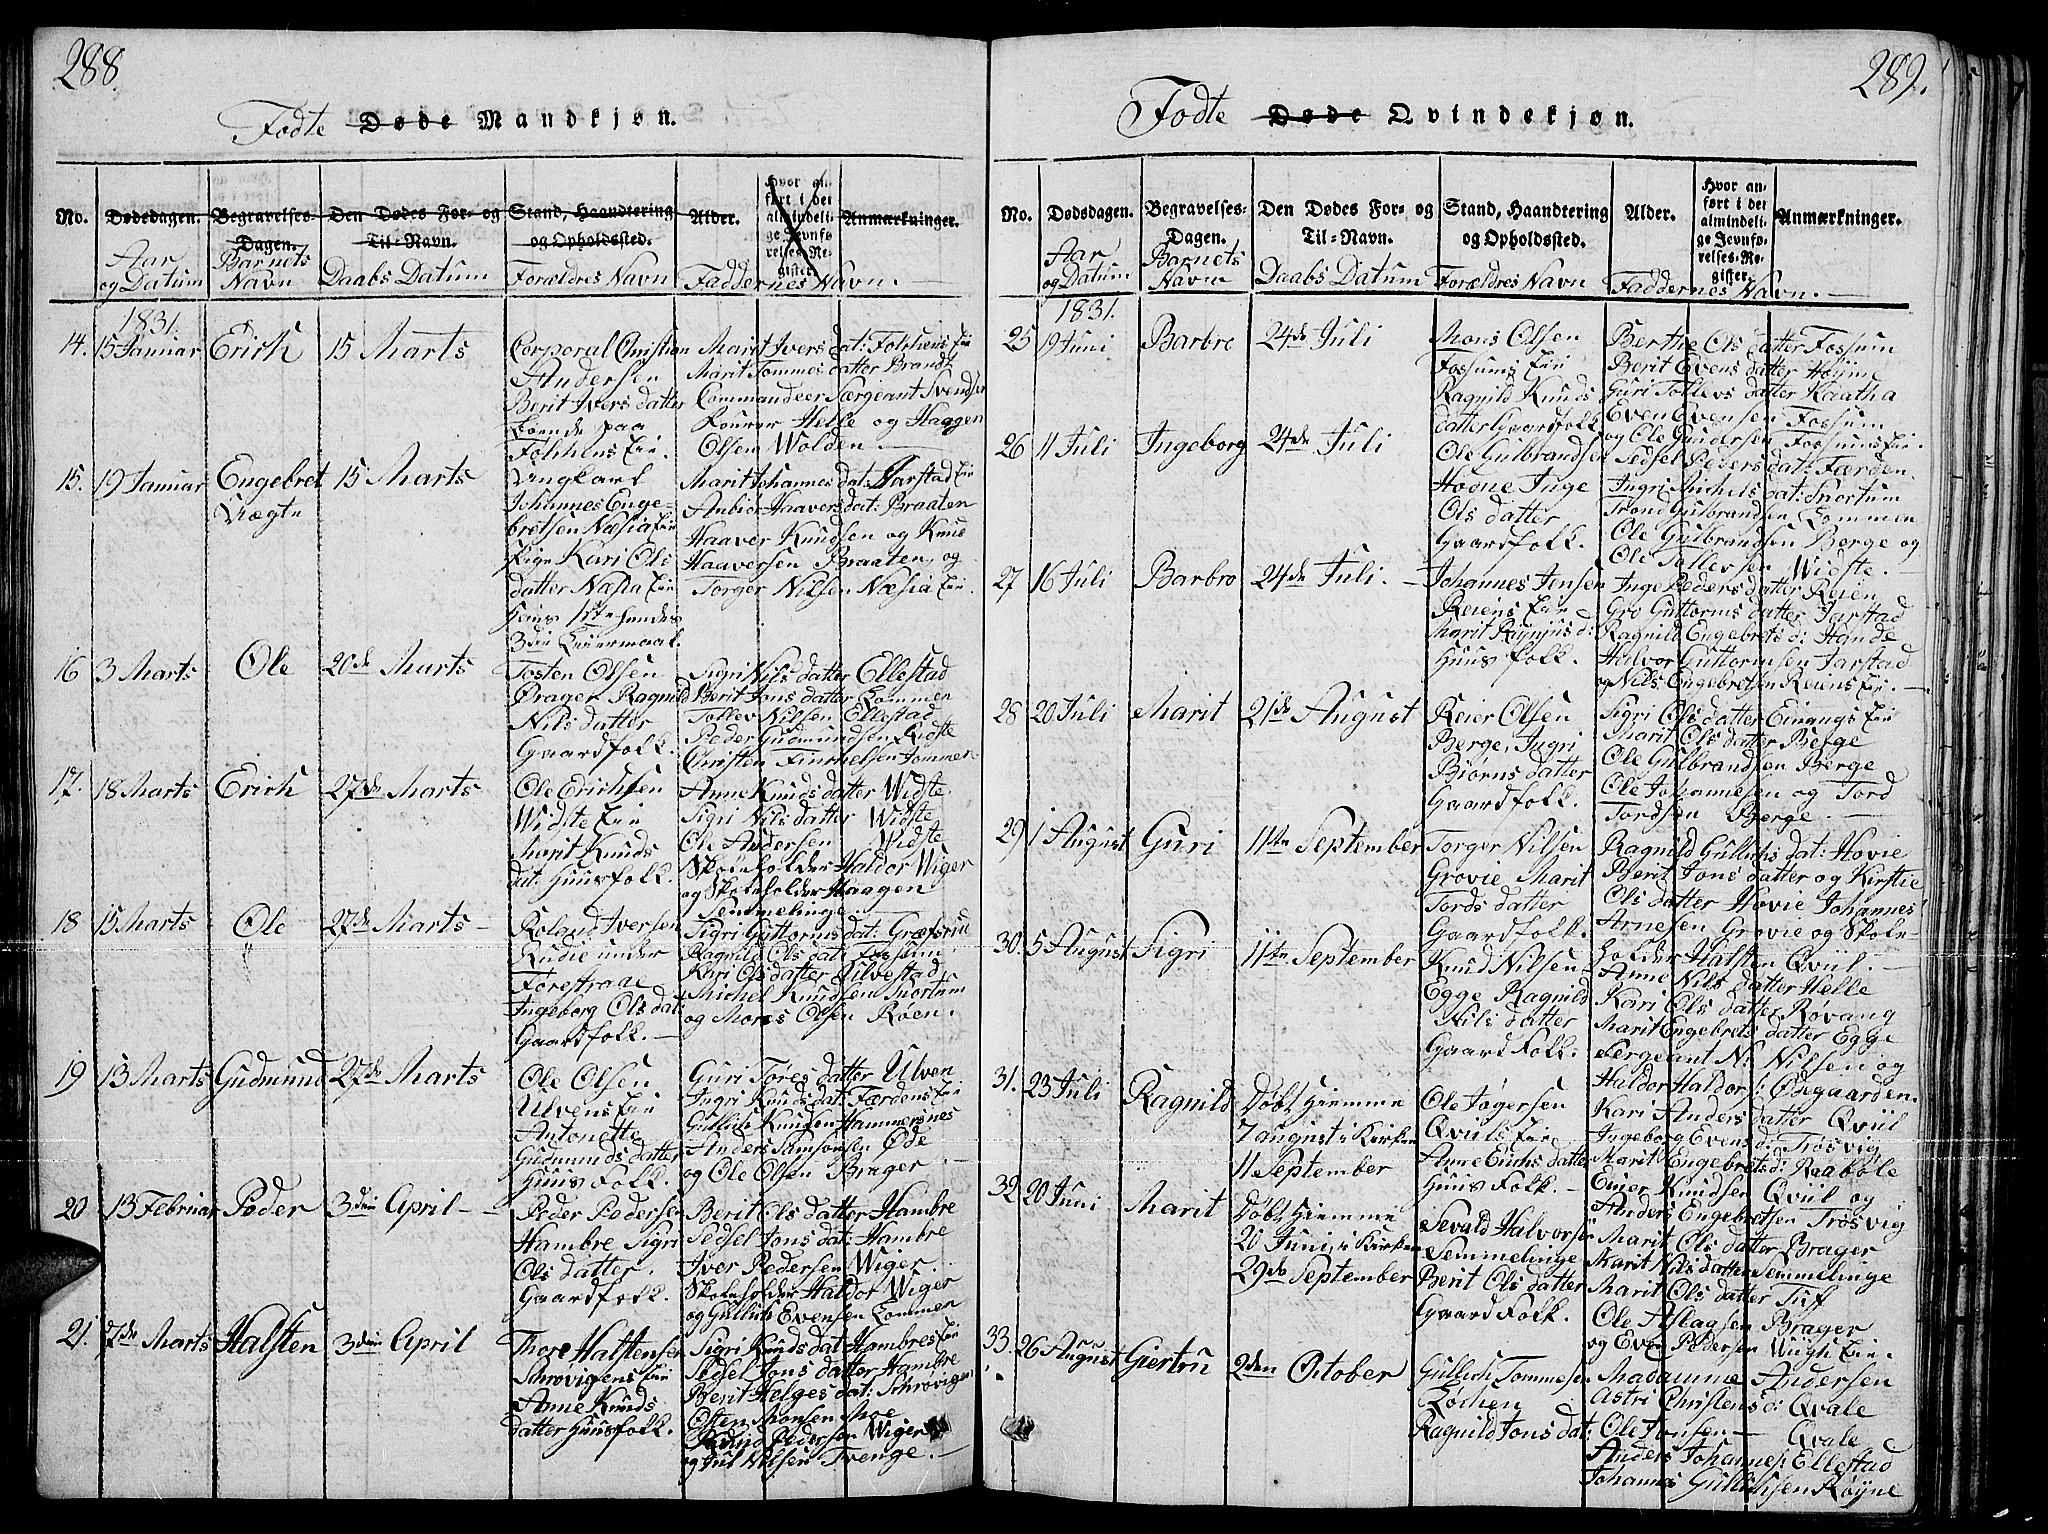 288.
Fødte Døde Mandkjøn.
No. Dødedagen. Begravelses-Dagen. Den Dødes For- og Til-Navn. Stand, Haandtering og Opholdssted. Alder. Hvor anført i det almindelige Jevnførelses-Register. Anmærkninger.
Aar og Datum Barnets Navn Daabs Datum Forældres Navn Faddernes Navn.
1831.
14. 15 Januar Erich 15 Marts Corporal Christian
Andersen
Berit Ivers datter
boende paa
Marit Ivers dat:
Marit Tommes datter Brandt
Commandeer Sergeant Svendsen
Helle og Haagen
Olsen Wolden
15. 19 Januar Engebret 15 Marts Ungkarl
Uægte
Johannes Enge-
bretsen Næsia Eie
Pige Kari Ols
datter Næsia Eie
hans 1ste hendes
3die Leiermaal.
Marit Johannes dat: Jarstad Eie
Anbior Haavers dat: Braaten
Haaver Knudsen og Knud
Haaversen Braaten, og
Torger Nilsen Næsia Eie.
16 3 Marts Ole 20de Marts Tosten Olsen
Drager Ragnild
Nils datter
Gaardfolk.
Sigri Nils datter Ellestad
Berit Jons datter Lommen
Tollev Nilsen Ellestad
Peder Gudmundsen
Christen
17. 18 Marts Erich 27de Marts Ole Erichsen
Widste Eie
Marit Knuds
dat: Huusfolk.
Anne Knuds datter Widste
Sigri Nils datter Widste
Ole Andersen Widste
Skoleholder Haldor Wiger
og Skoleholder Haagen
Semmelinge
18 15 Marts Ole 27de Marts Roland Iversen
Rudie under
Ingeborg Ols dat:
Gaardfolk.
Sigri Guttorms dat:
Ragnild Ols dat: Fossum
Kari Ols datter Ulvestad
Michel Knudsen Snortum
og Mons Olsen Røen.
19 13 Marts Gudmund 27de Marts Ole Olsen
Ulvens Eie
Antonette
Gudmunds datter
Huus Folk.
Guri Tores datter Ulven
Ingri Knuds dat: Færdens Eie
Gullich Knudsen Hammersnes
Anders Samsonsen Øde
og Ole Olsen Brager
20 13 Februar Peder 3die April Peder Pedersen
Hambre Sigri
Ols datter.
Gaardfolk.
Berit Ols datter Hambre
Sedsel Jons dat: Hambre
Iver Pedersen Wiger
Skoleholder Haldor Wiger
og Gullich Evensen Lommen
21. 7de Marts Halsten 3die April Thore Halstensen
Schrøvigens Eie
Anne Knuds
datter Huusfolk.
Sigri Knuds dat Hambres Eie
Sedsel Jons datter Hambre
Berit Helges dat: Schrøvigen
Osten Monsen Moe
Pedersen Wiger
og Nilsen Tvenge.
289.
Fødte Døde Qvindekjøn.
No. Dødsdagen. Begravelses-Dagen. Den Dødes For- og Til-Navn. Stand, Haandtering og Opholdssted. Alder. Hvor anført i det almindelige Jevnførelses-Register. Anmærkninger.
Aar og Datum Barnets Navn Daabs Datum Forældres Navn Faddernes Navn.
1831.
25 19 Juni Barbro 24de Juli Mons Olsen
Fossums Eie
Ragnild Knuds
datter Gaardfolk
Berthe Ols datter Fossum
Berit Evens datter Høyme
Guri Tollevs datter Kaatha
Even Evensen Fossum
og Ole Gundersen Fossums Eie.
26 11 Juli Ingeborg 24de Juli Ole Gulbrandsen
Hovne Inge
Ols datter
Gaardfolk.
Sedsel Peders dat: Færden
Ingri Michels dat: Snortum
Trond Gulbrandsen Lommen
Ole Gulbrandsen Berge og
Ole Tollevsen Widste.
27 16 Juli Barbro 24de Juli. Johannes Jensen
Reiens Eie
Marit
Huus folk.
Inge Peders datter Reien
Gro Guttorms datter Jarstad
Ragnild Engebrets d: Hande
Halvor Guttormsen Jarstad
og Nils Engebretsen Reiens Eie.
28 20 Juli Marit 21de August Reier Olsen
Berge, Ingri
Biørns datter
Gaardfolk.
Sigri Ols datter Einangs Eie
Marit Ols datter Berge
Ole Gulbrandsen Berge
Ole Johannesen og Tord
Tordsen Berge.
29 1 August Guri 11te September Torger Nilsen
Grovie Marit
Tords datter
Gaardfolk.
Ragnild Gullichs dat: Hovie
Berit Jons datter og Kirstie
Ols datter Hovie Johannes
Arnesen Grovie og Skole-
holder Halsten Qviil.
30. 5 August Sigri 11te September Knud Nilsen
Egge Ragnild
Nils datter
Gaard Folk.
Anne Nils datter Helle
Kari Ols datter Røvang
Marit Engebrets datter Egge
Sergeant N: Nilsen og
Haldor Haldors: Ødegaarden.
31. 23 Juli Ragnild Døbt hiemme
7 august i Kirken
11 September
Ole Jøgersen
Qviils Eie
Anne Erichs datter
Huus Folk.
Kari Anders datter Qviil
Ingeborg Evens d: Trøsvig
Marit Engebrets d: Raabøle
Knudsen Qviil og
Anders Engebretsen Trøsvig
32 20 Juni Marit Døbt hiemme
20 Juni, i Kirken
29de September
Sevald Halvorsen
Semmelinge
Berit Ols datter
Gaard Folk.
Marit Ols datter Brager
Marit Nils datter Semmelinge
Marit Ols datter
Ole Aslagsen Brager
og Even Pedersen
33. 26 August Giertru 2den October Gullich Tommesen
Ragnild Jons dat:
Madamme Andersen
Astri Christens d: Qvale
Ole Jonsen Qvale
Anders Johannes: Ellestad
Johannes Gullichsen Røyne